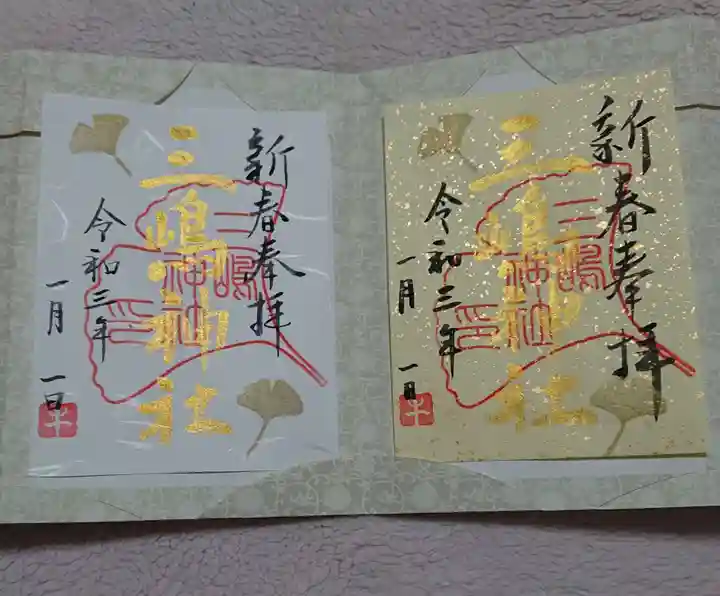 新春奉拝
三嶋神社
三嶋神社印
令和三年
一月一日
新春奉拝
三嶋神社
三嶋神社印
令和三年
一月一日